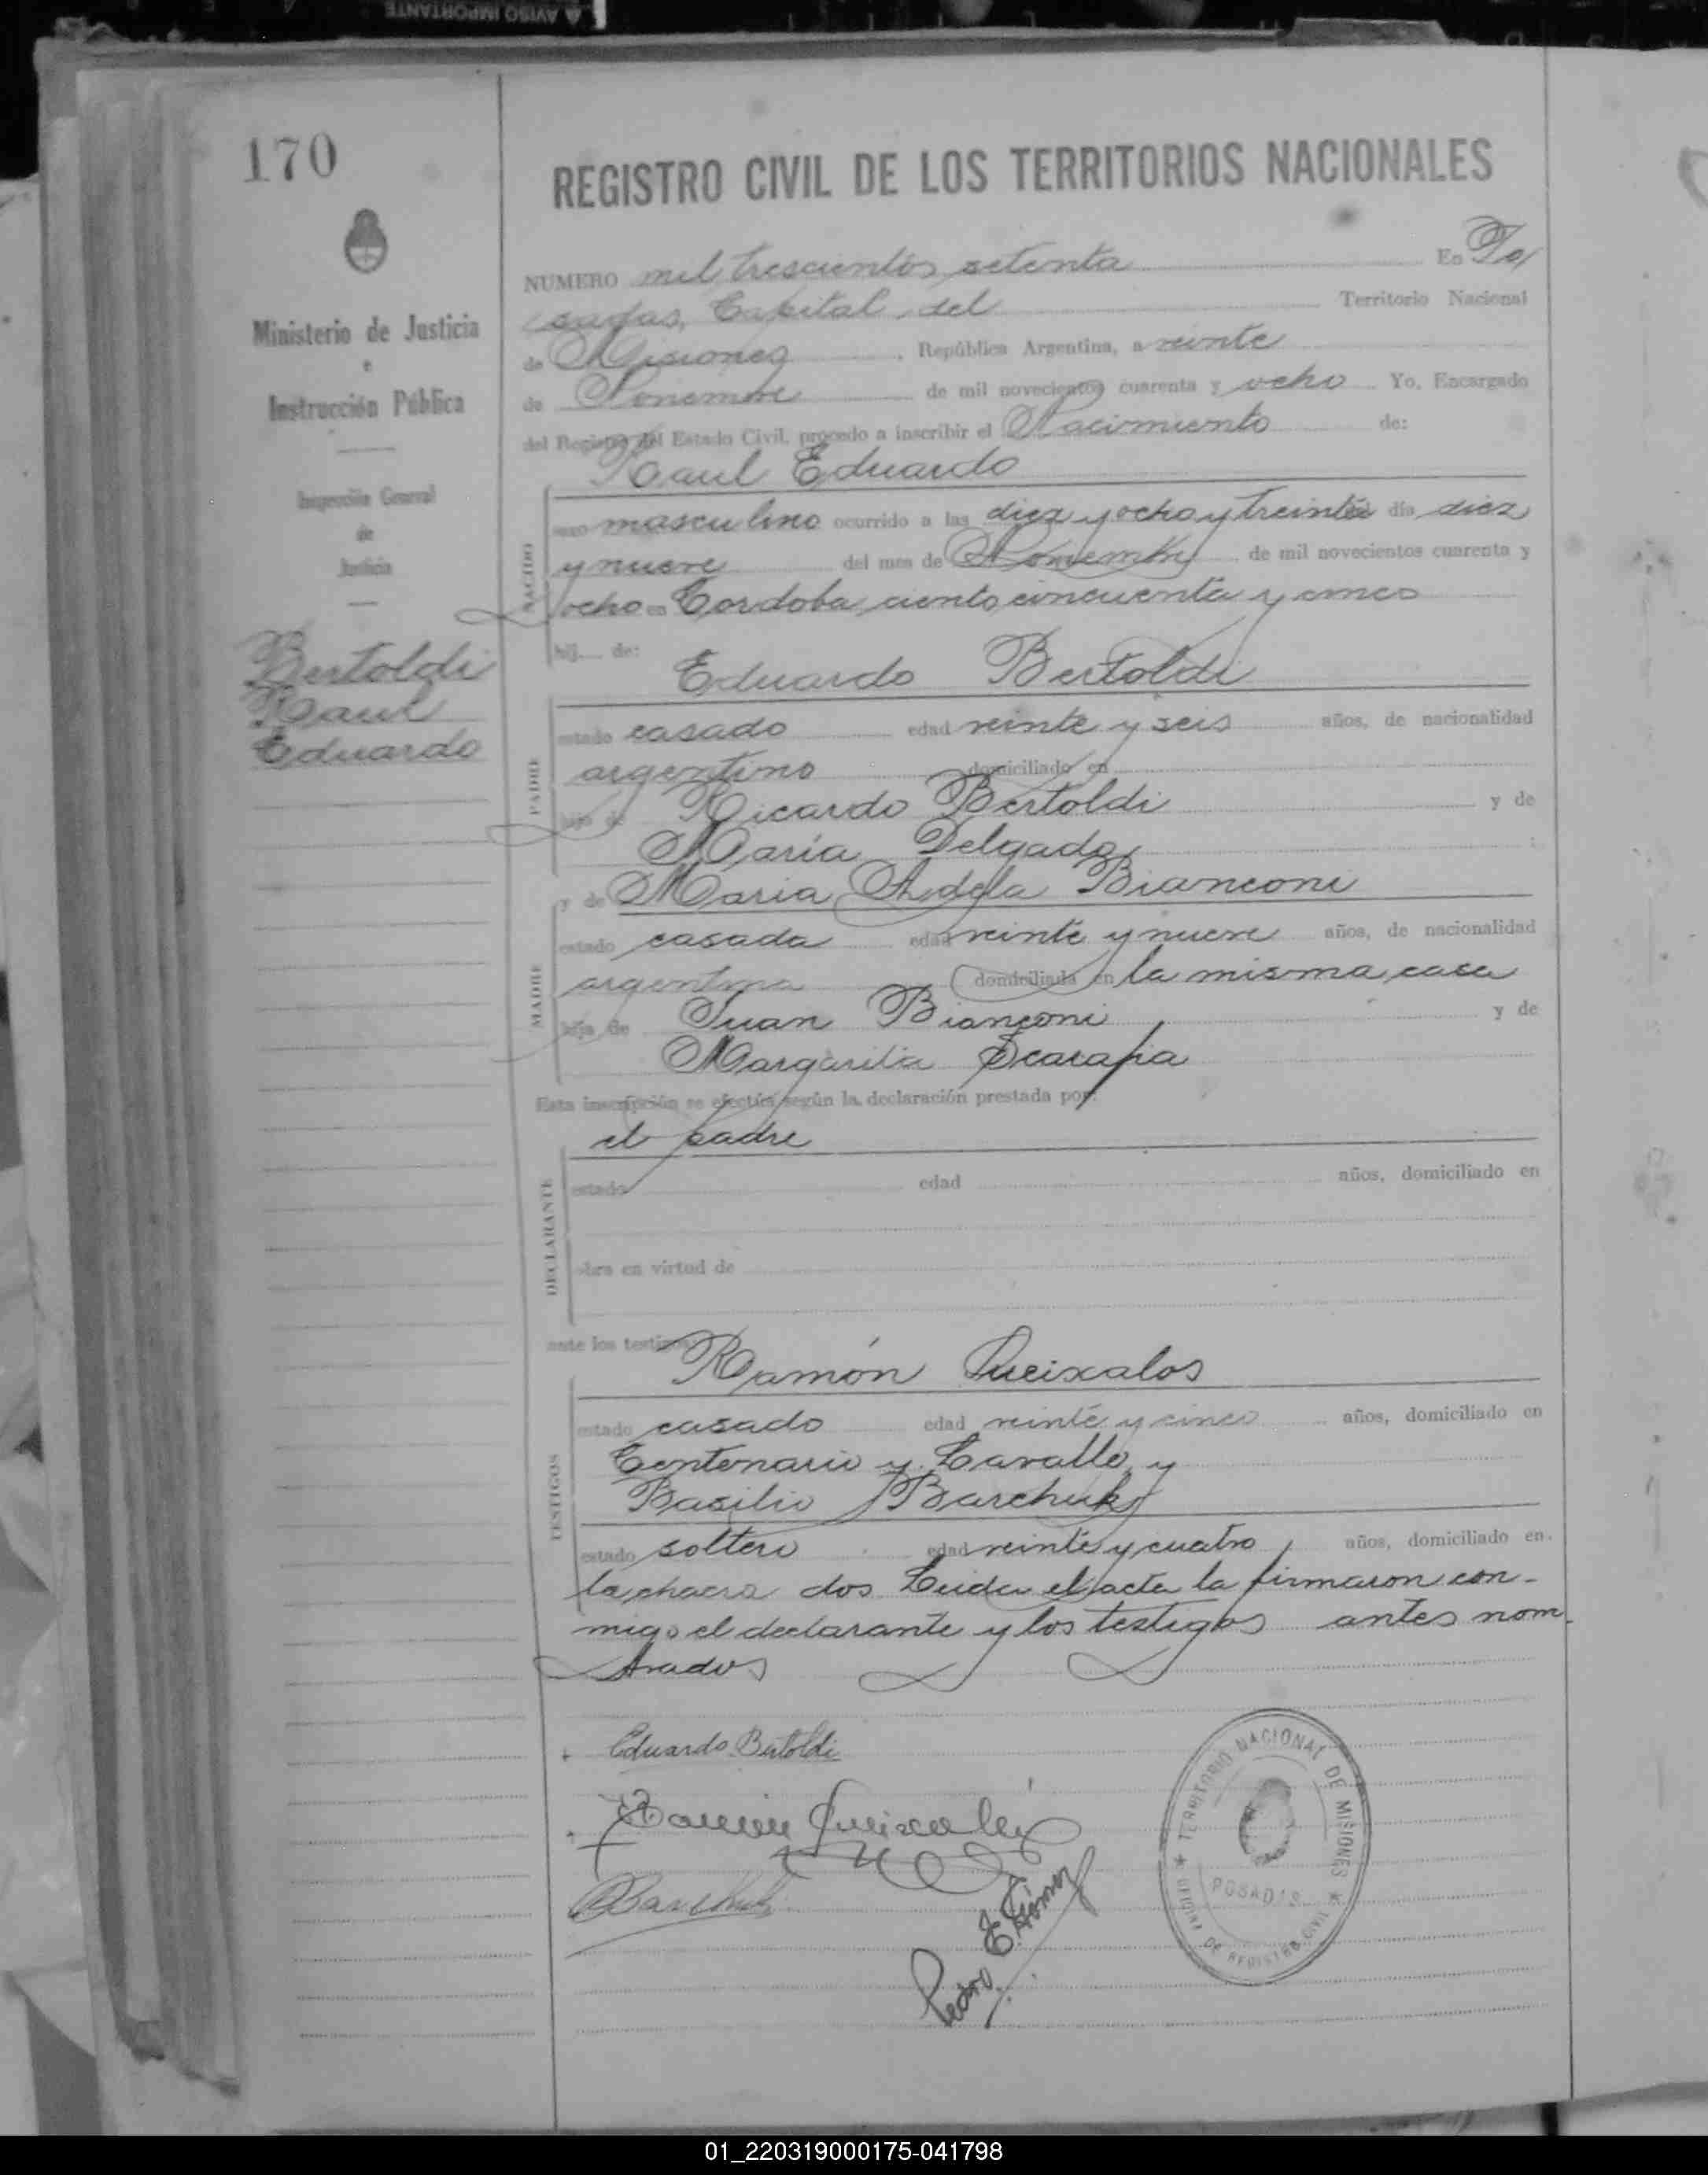 AVISO IMPORTANTE
170
REGISTRO CIVIL DE LOS TERRITORIOS NACIONALES
Ministerio de Justicia
e
Instrucción Pública
Inspección General
de
Justicia
Bertoldi
Raul
Eduardo
NUMERO mil trescientos setenta En Po/
sadas, Capital del Territorio Nacional
de Misiones, República Argentina, a veinte
de Noviembre de mil novecientos cuarenta y ocho Yo, Encargado
del Registro del Estado Civil, procedo a inscribir el Nacimiento de:
Raul Eduardo
NACIDO
sexo masculino ocurrido a las diez y ocho y treinta día diez
y nueve del mes de Noviembre de mil novecientos cuarenta y
ocho en Cordoba ciento cincuenta y cinco
hij... de:
Eduardo Bertoldi
PADRE
estado casado edad veinte y seis años, de nacionalidad
argentino domiciliado en
hijo de Ricardo Bertoldi y de
María Delgado
y de Maria Adela Bianconi
MADRE
estado casada edad veinte y nueve años, de nacionalidad
argentina domiciliada en la misma casa
hija de Juan Bianconi y de
Margarita Scarapa
Esta inscripción se efectúa según la declaración prestada por:
el padre
DECLARANTE
estado edad años, domiciliado en
obra en virtud de
ante los testigos
Ramón Queixalos
TESTIGOS
estado casado edad veinte y cinco años, domiciliado en
Centenario y Lavalle y
Basilio Barchuk
estado soltero edad veinte y cuatro años, domiciliado en
la chacra dos Leida el acta la firmaron con-
migo el declarante y los testigos antes nom-
brados
Eduardo Bertoldi
Ramón Queixalós
BBarchuk
Pedro E Gómez
TERRITORIO NACIONAL DE MISIONES
POSADAS
OFICINA DE REGISTRO CIVIL
01_220319000175-041798